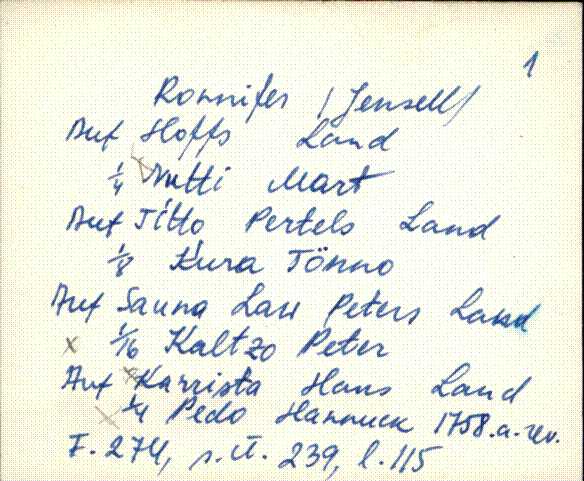 1
Ronnifer /Jensell/
Auf Hoffs Land
1/4 Nutti Mart
Auf Titto Pertels Land
1/8 Kura Tönno
Auf Sauna Laur Peters Land
x 1/16 Kaltzo Peter
Auf Karrista Hans Land
x 1/4 Pedo Hannuck 1758.a.rev.
F. 274, s.ü. 239, l. 115